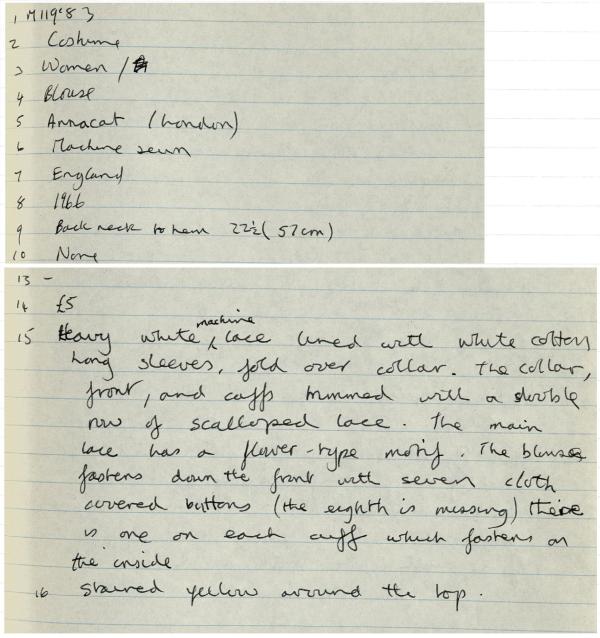 1 M119'83
2 Costume
3 Women /
4 Blouse
5 Annacat (London)
6 Machine sewn
7 England
8 1966
9 Back neck to hem 22½ (57cm)
10 None
13 -
14 £5
15 Heavy white machine lace lined with white cotton
Long sleeves, fold over collar. The collar,
front, and cuffs trimmed with a double
row of scalloped lace. The main
lace has a flower-type motif. The blouse
fastens down the front with seven cloth
covered buttons (the eighth is missing) there
is one on each cuff which fastens on
the inside
16 Stained yellow around the top.